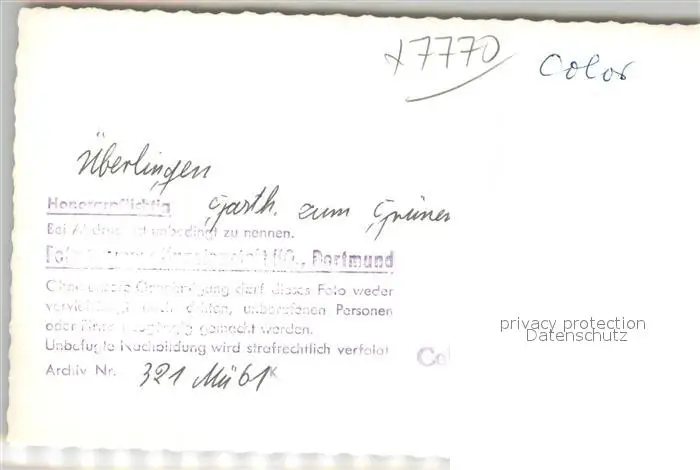 x7770
Color
Überlingen
Gasth. zum Grünen
Honorarpflichtig
Bei Abdruck ist unbedingt zu nennen.
KG., Dortmund
Ohne unsere Genehmigung darf dieses Foto weder
vervielfältigt noch dritten, unberufenen Personen
oder Firmen zugängig gemacht werden.
Unbefugte Nachbildung wird strafrechtlich verfolgt
Archiv Nr. 321 Mü61K
privacy protection
Datenschutz